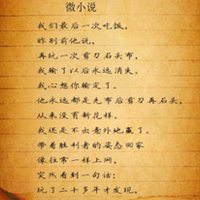 微小说
我们最后一次吃饭，
临别前他说，
再玩一次剪刀石头布，
我输了以后永远消失。
我心想你输定了。
他永远都是先布后剪刀再石头，
从来没有新花样。
我还是不出意外地赢了。
带着胜利者的姿态回家
像往常一样上网，
突然看到一句话：
玩了二十多年才发现，